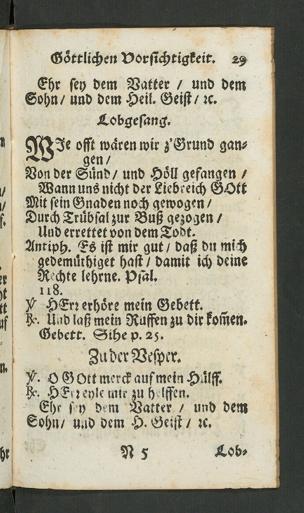 Göttlichen Vorsichtigkeit. 29
Ehr sey dem Vatter / und dem
Sohn / und dem Heil. Geist / ꝛc.
Lobgesang.
WJe offt wären wir z'Grund gan-
gen /
Von der Sünd / und Höll gefangen /
Wann uns nicht der Liebreich GOtt
Mit sein Gnaden noch gewogen /
Durch Trübsal zur Buß gezogen /
Und errettet von dem Todt.
Antiph. Es ist mir gut / daß du mich
gedemüthiget hast / damit ich deine
Rechte lehrne. Psal.
118.
℣. HErr erhöre mein Gebett.
℟. Und laß mein Ruffen zu dir kom̃en.
Gebett. Sihe p. 25.
Zu der Vesper.
℣. O GOtt merck auf mein Hülff.
℟. HErr eyle mir zu helffen.
Ehr sey dem Vatter / und dem
Sohn / und dem H. Geist / ꝛc.
N 5 Lob-